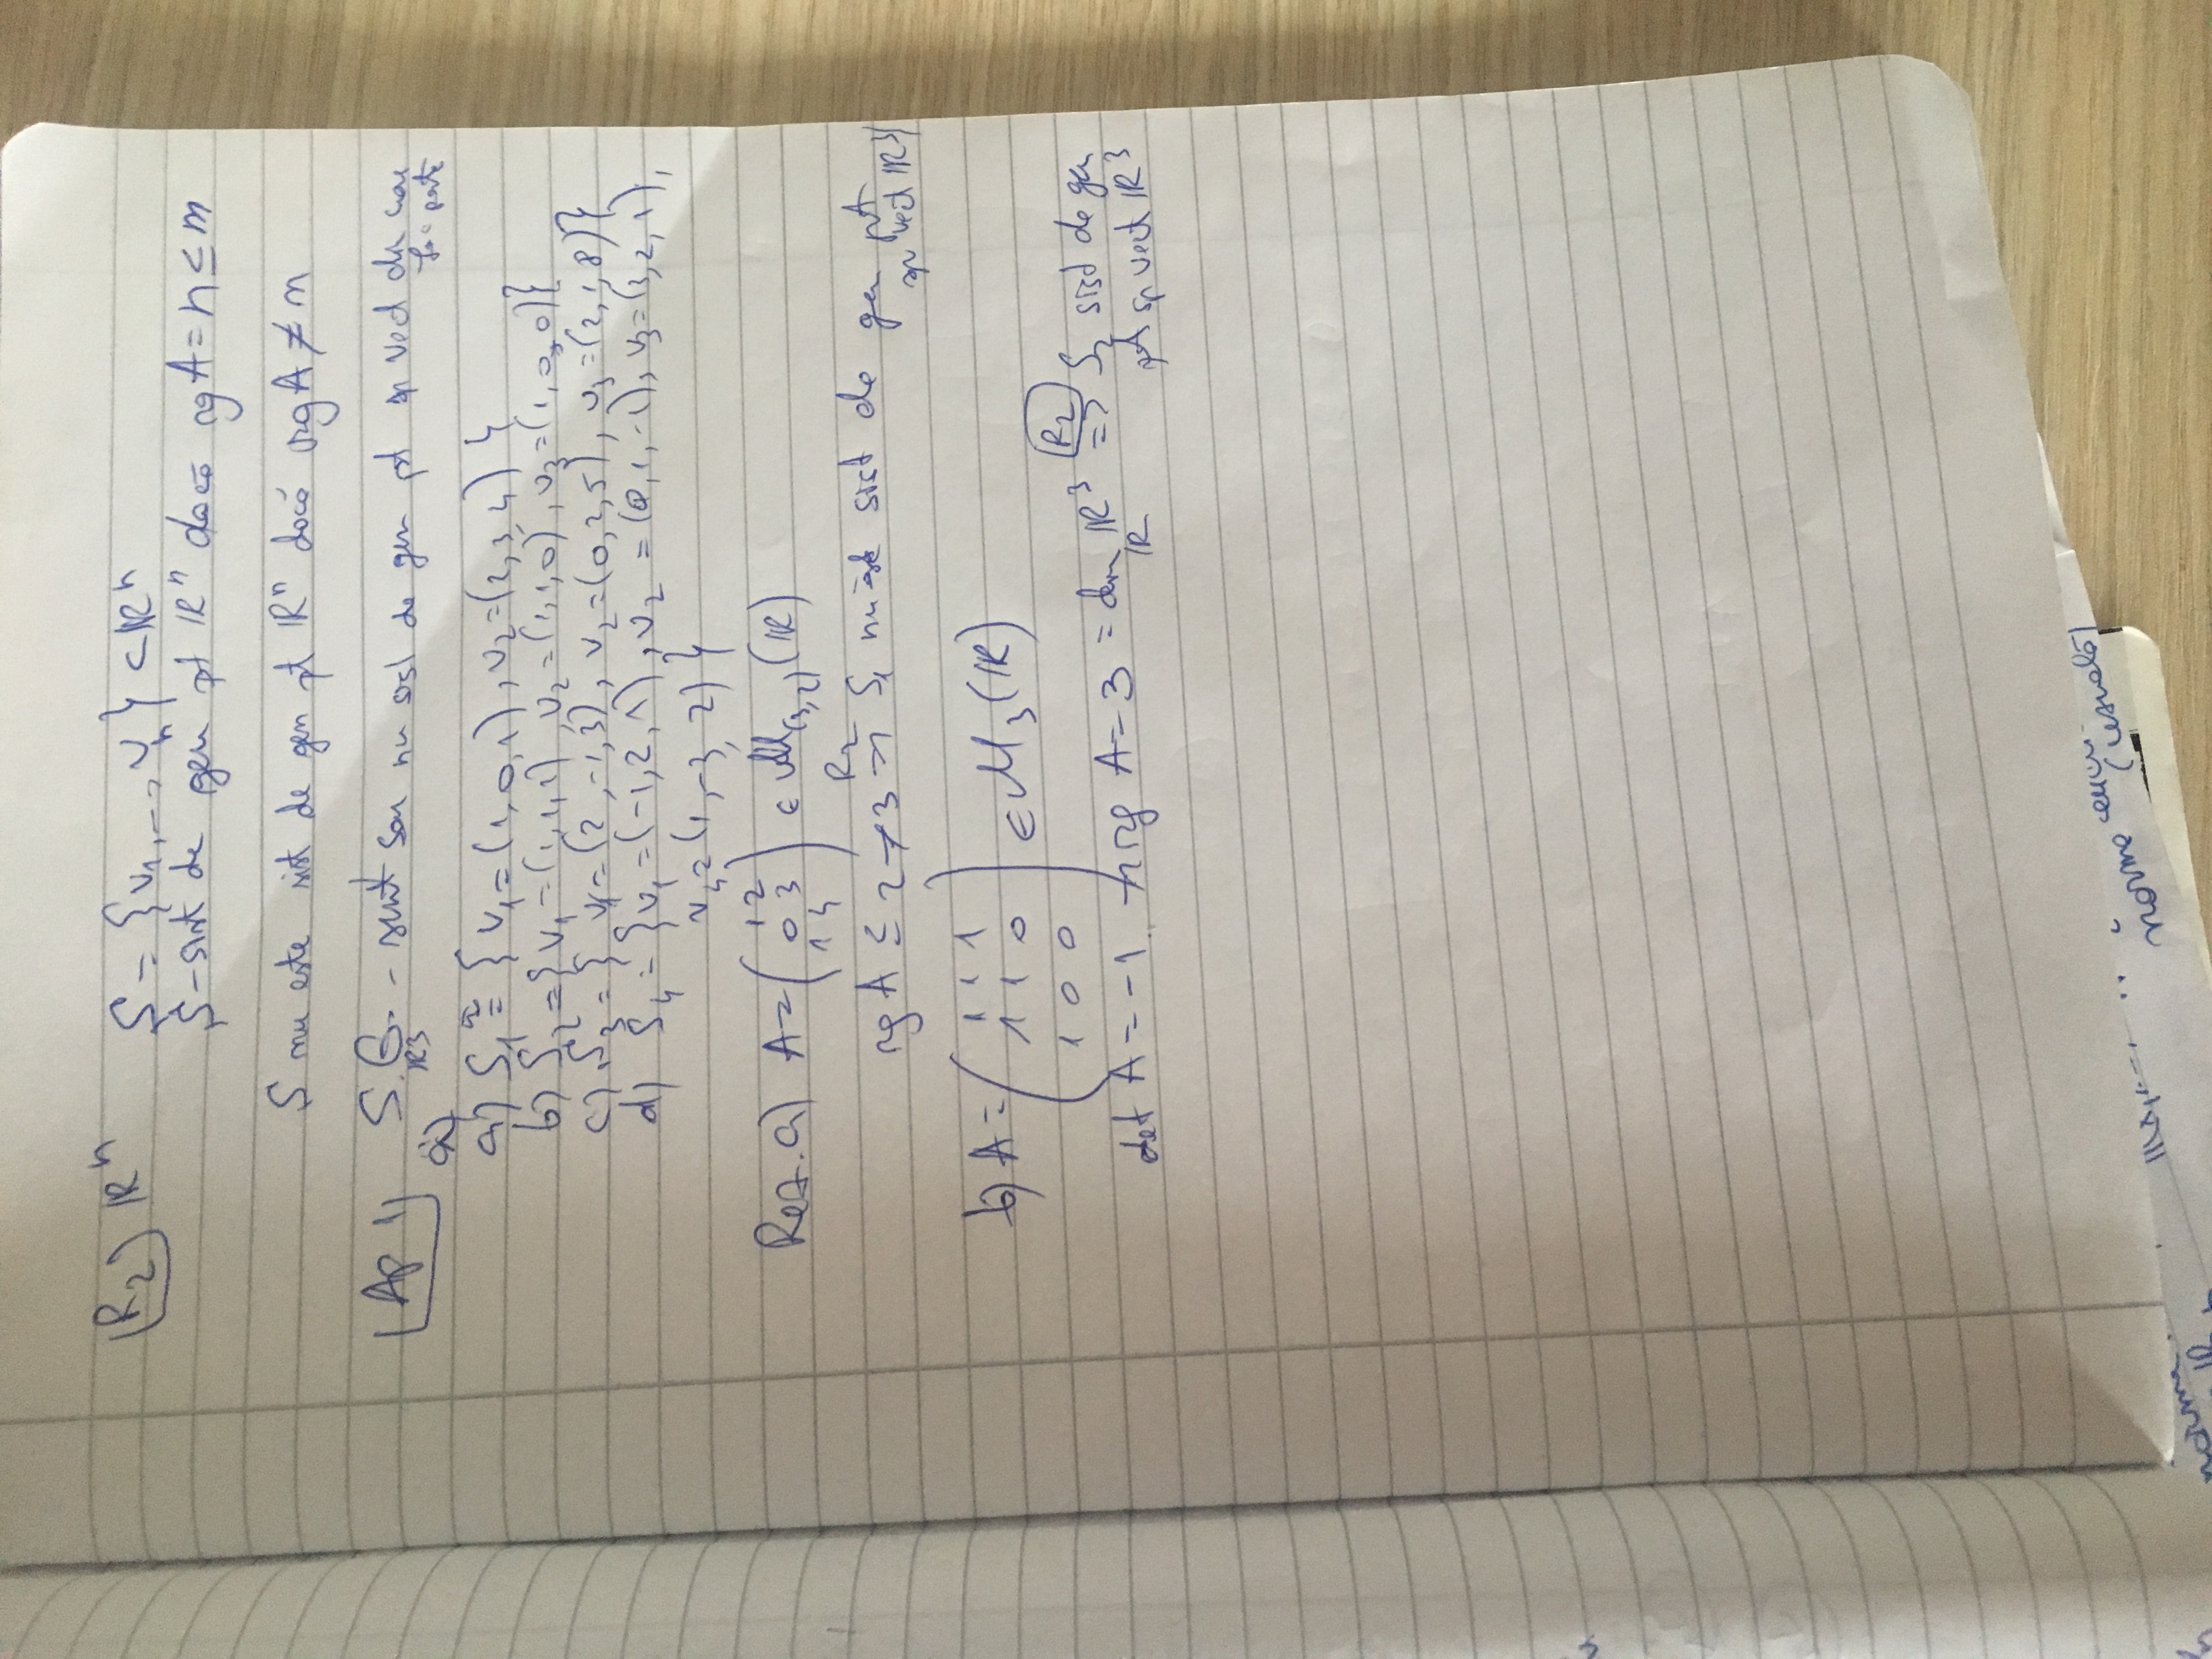 R2) ℝⁿ S = {v₁, ..., vₙ} ⊂ ℝⁿ
S - sist de gen pt ℝⁿ dacă rg A = n ≤ m
S nu este sist de gen pt ℝⁿ dacă rg A ≠ n
Ap 1 S.G. - sunt sau nu sist de gen pt sp vect din care
ℝ3 fac parte
a)
a) S₁ = { v₁ = (1, 0, 1), v₂ = (2, 3, 4) }
b) S₂ = { v₁ = (1, 1, 1), v₂ = (1, 1, 0), v₃ = (1, 0, 0) }
c) S₃ = { v₁ = (2, -1, 3), v₂ = (0, 2, 5), v₃ = (2, 1, 8) }
d) S₄ = { v₁ = (-1, 2, 1), v₂ = (0, 1, -1), v₃ = (3, 2, 1),
v₄ = (1, -3, 2) }
1 2
Rez. a) A = ( 0 3 ) ∈ M(3,2) (ℝ)
1 4
R2
rg A ≤ 2 ≠ 3 => S₁ nu este sist de gen pt
sp vect ℝ³
1 1 1
b) A = ( 1 1 0 ) ∈ M₃(ℝ)
1 0 0
R2
det A = -1 => rg A = 3 = dim ℝ³ => S₂ sist de gen
ℝ pt sp vect ℝ³
norma
(uzuală)
norma